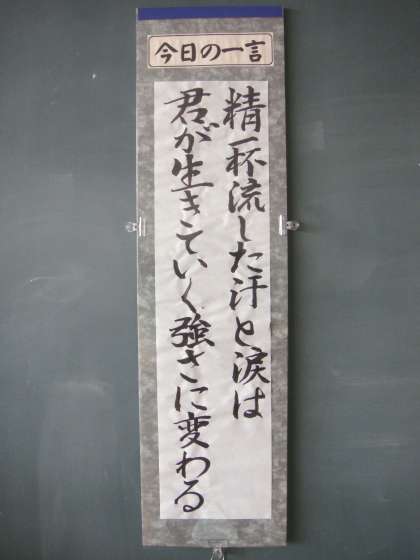 今日の一言
精一杯流した汗と涙は
君が生きていく強さに変わる